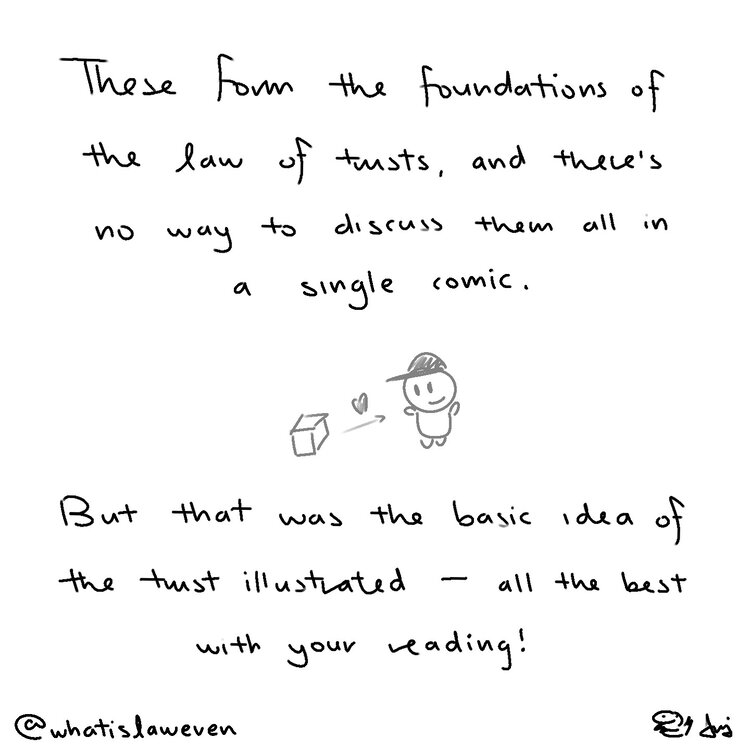 These form the foundations of
the law of trusts, and there's
no way to discuss them all in
a single comic.
But that was the basic idea of
the trust illustrated – all the best
with your reading!
@whatislaweven